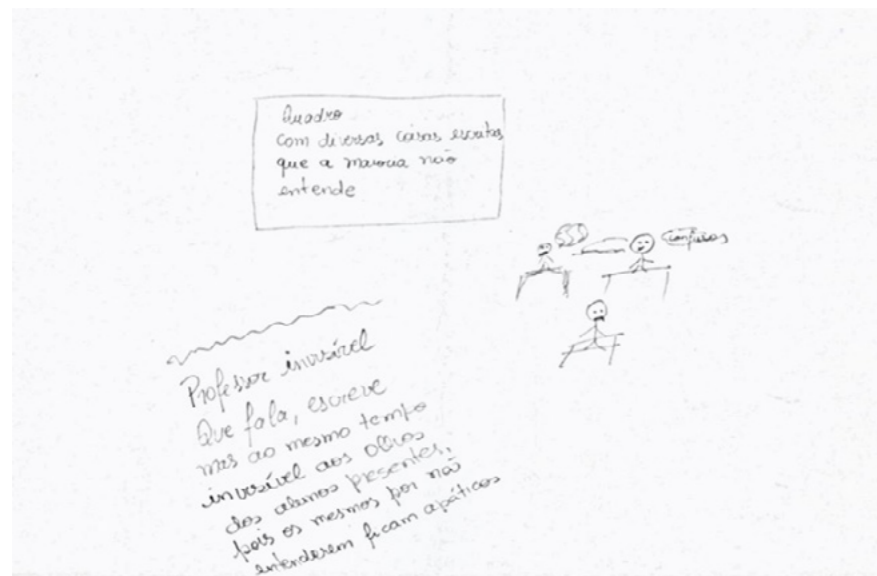 Quadro
com diversas coisas escritas
que a maioria não
entende
confusos
Professor invisível
Que fala, escreve
mas ao mesmo tempo
invisível aos olhos
dos alunos presentes,
pois os mesmos por não
entenderem ficam apáticos